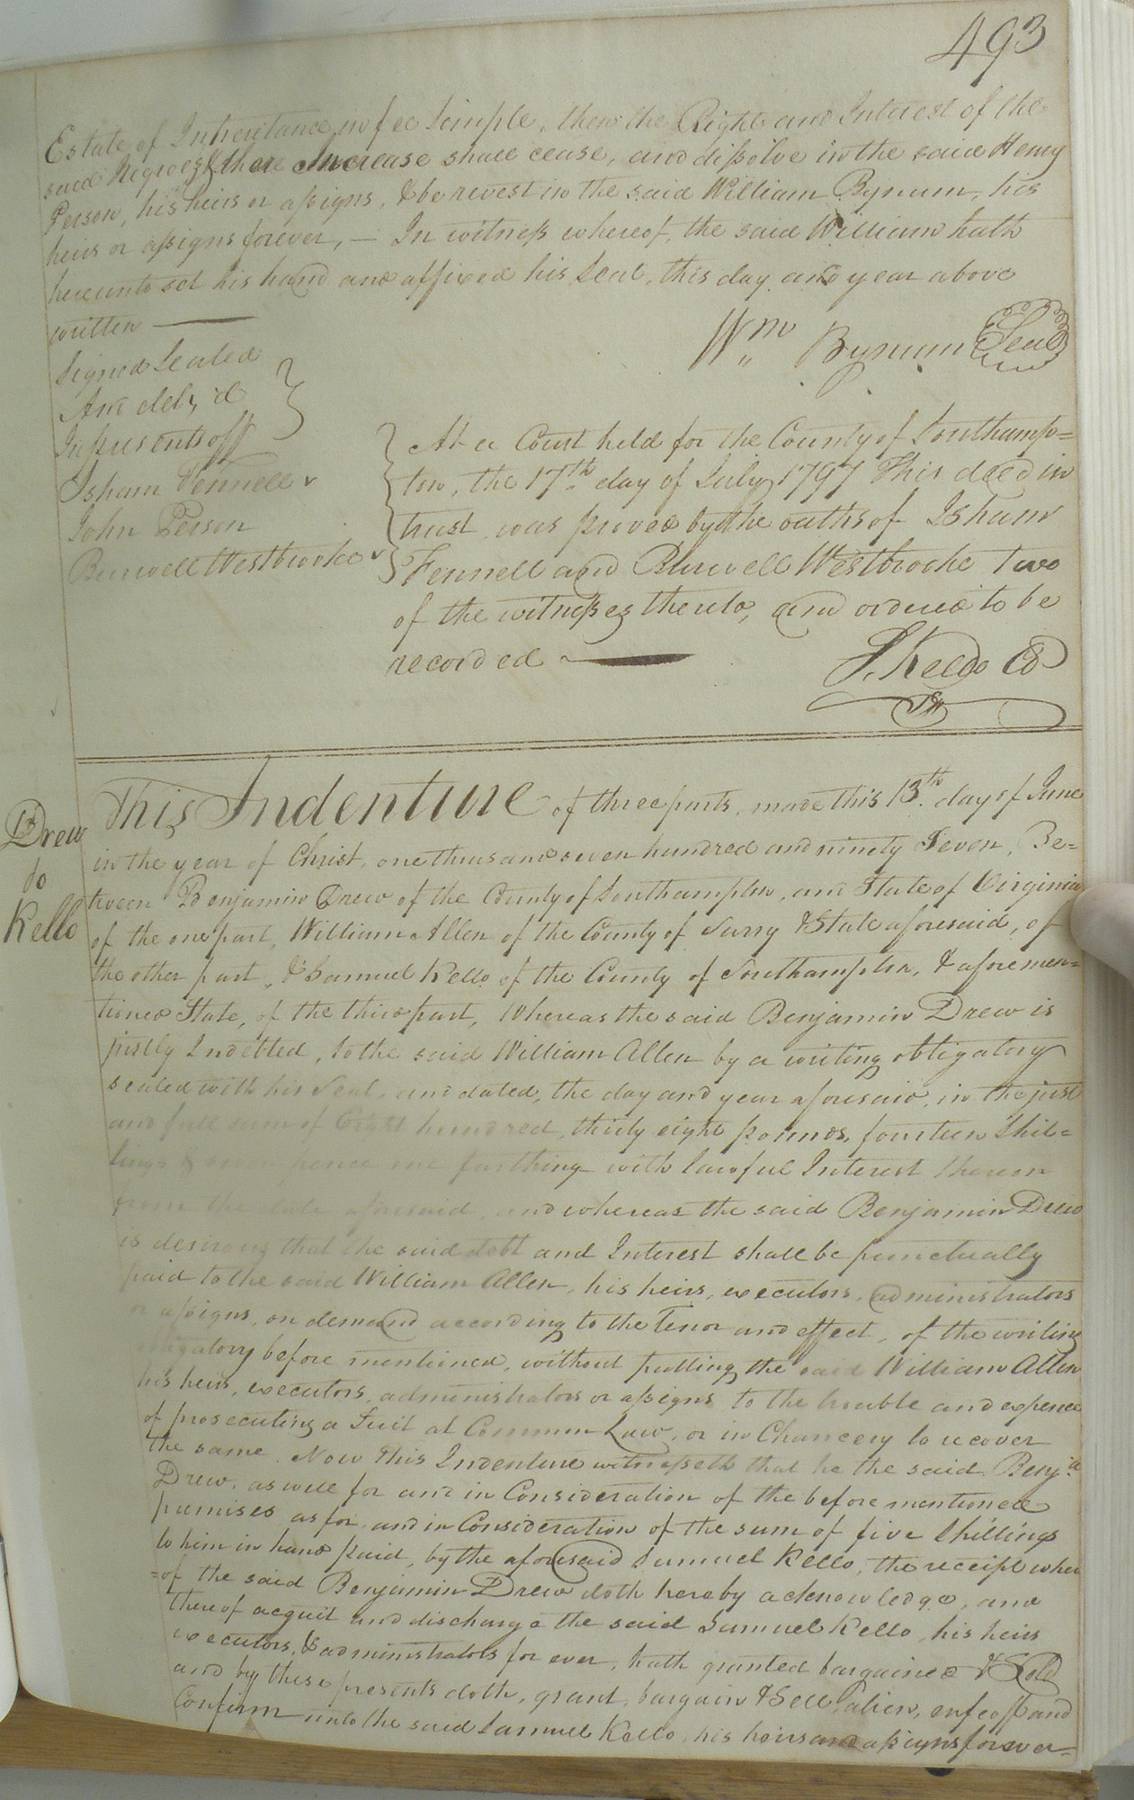 493
Estate of Inheritance in fee Simple, then the Right and Interest of the
said Negroes & there Increase shall cease, and dissolve in the said Henry
Person, his heirs or assigns, & be revest in the said William Bynum, his
heirs or assigns forever, — In witness whereof, the said William hath
hereunto set his hand and affixed his Seal, this day and year above
written —
Wm Bynum Seal
Signed Sealed
And deliv'd
In presents off
Isham Fennell
John Person
Burwell Westbrooke
At a Court held for the County of Southamp=
ton, the 17th day of July 1797 This deed in
trust was proved by the oaths of Isham
Fennell and Burwell Westbrooke two
of the witnesses thereto, and ordered to be
recorded —
S. Kello CC
Drew
to
Kello
This Indenture of three parts, made this 13th day of June
in the year of Christ, one thousand seven hundred and ninety Seven, Be=
tween Benjamin Drew of the County of Southampton, and State of Virginia
of the one part, William Allen of the County of Surry & State aforesaid, of
the other part, & Samuel Kello of the County of Southampton, & aforemen=
tioned State, of the third part, Whereas the said Benjamin Drew is
justly Indebted, to the said William Allen by a writing obligatory
sealed with his Seal, and dated, the day and year aforesaid, in the just
and full sum of hundred thirty eight pounds, fourteen Shil=
lings & pence one farthing with lawful Interest thereon
from the date aforesaid, and whereas the said Benjamin Drew
is desirous that the said debt and Interest shall be punctually
paid to the said William Allen, his heirs, executors, administrators
or assigns, on demand according to the Tenor and effect, of the writing
obligatory before mentioned, without putting the said William Allen
his heirs, executors, administrators or assigns to the trouble and expence
of prosecuting a Suit at Common Law, or in Chancery to recover
the same. Now This Indenture witnesseth that he the said Benja
Drew, as well for and in Consideration of the before mentioned
premises as for and in Consideration of the sum of five Shillings
to him in hand paid, by the aforesaid Samuel Kello, the receipt wher
=of the said Benjamin Drew doth hereby acknowledge, and
thereof acquit and discharge the said Samuel Kello, his heirs
executors, & administrators for ever, hath granted bargained & Sold
and by these presents doth, grant, bargain & Sell, alien, enfeoff and
Confirm unto the said Samuel Kello, his heirs and assigns forever=